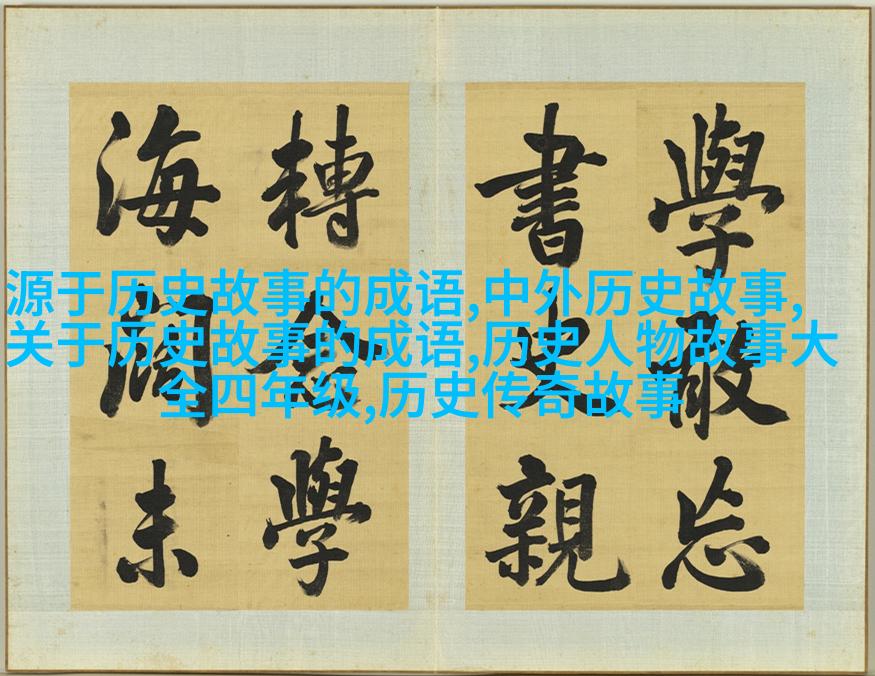 源于历史故事的成语,中外历史故事,
关于历史故事的成语,历史人物故事大
全四年级,历史传奇故事
學敢忘
書史親
轉學
海闊未